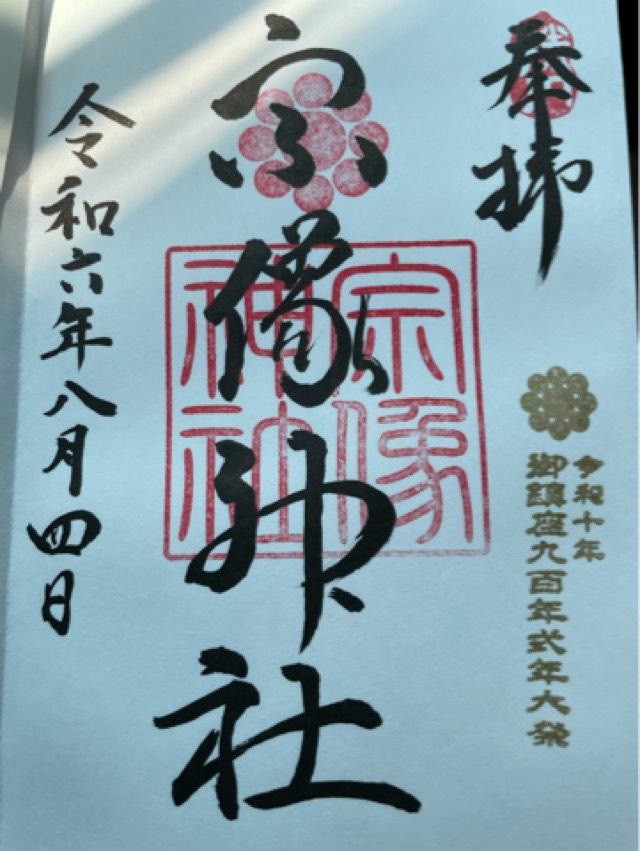 奉拝
令和十年
御鎮座九百年式年大祭
宗像神社
宗像神社
令和六年八月四日